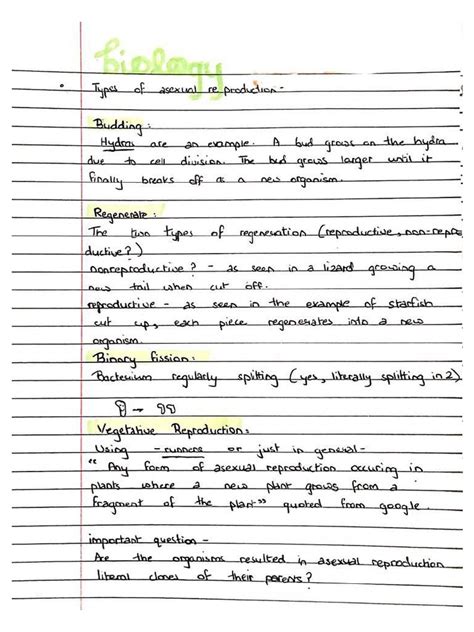 biology
• Types of asexual reproduction -
Budding :
Hydras are an example. A bud grows on the hydra
due to cell division. The bud grows larger until it
finally breaks off as a new organism.
Regenerate :
The two types of regeneration (reproductive, non-repro
ductive?)
nonreproductive? - as seen in a lizard growing a
new tail when cut off.
reproductive - as seen in the example of starfish
cut up, each piece regenerates into a new
organism.
Binary fission:
Bacterium regularly splitting (yes, literally splitting in 2)
Vegetative Reproduction:
Using - runners or just in general -
" Any form of asexual reproduction occuring in
plants where a new plant grows from a
fragment of the plant" quoted from google.
important question -
Are the organisms resulted in asexual reproduction
literal clones of their parents?